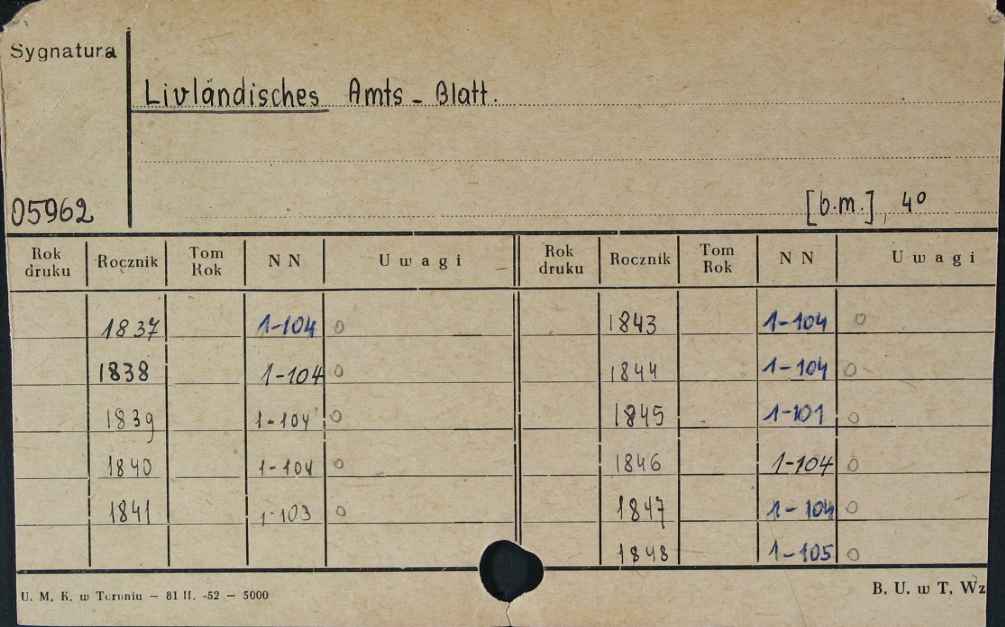 Sygnatura
Livländisches Amts-Blatt.
05962
[b.m.], 4º
Rok druku Rocznik Tom Rok NN Uwagi Rok druku Rocznik Tom Rok NN Uwagi
1837 1-104 o 1843 1-104 o
1838 1-104 o 1844 1-104 o
1839 1-104 o 1845 1-101 o
1840 1-104 o 1846 1-104 o
1841 1-103 o 1847 1-104 o
1848 1-105 o
U. M. K. w Toruniu — 81 II. -52 — 5000 B. U. w T. Wz